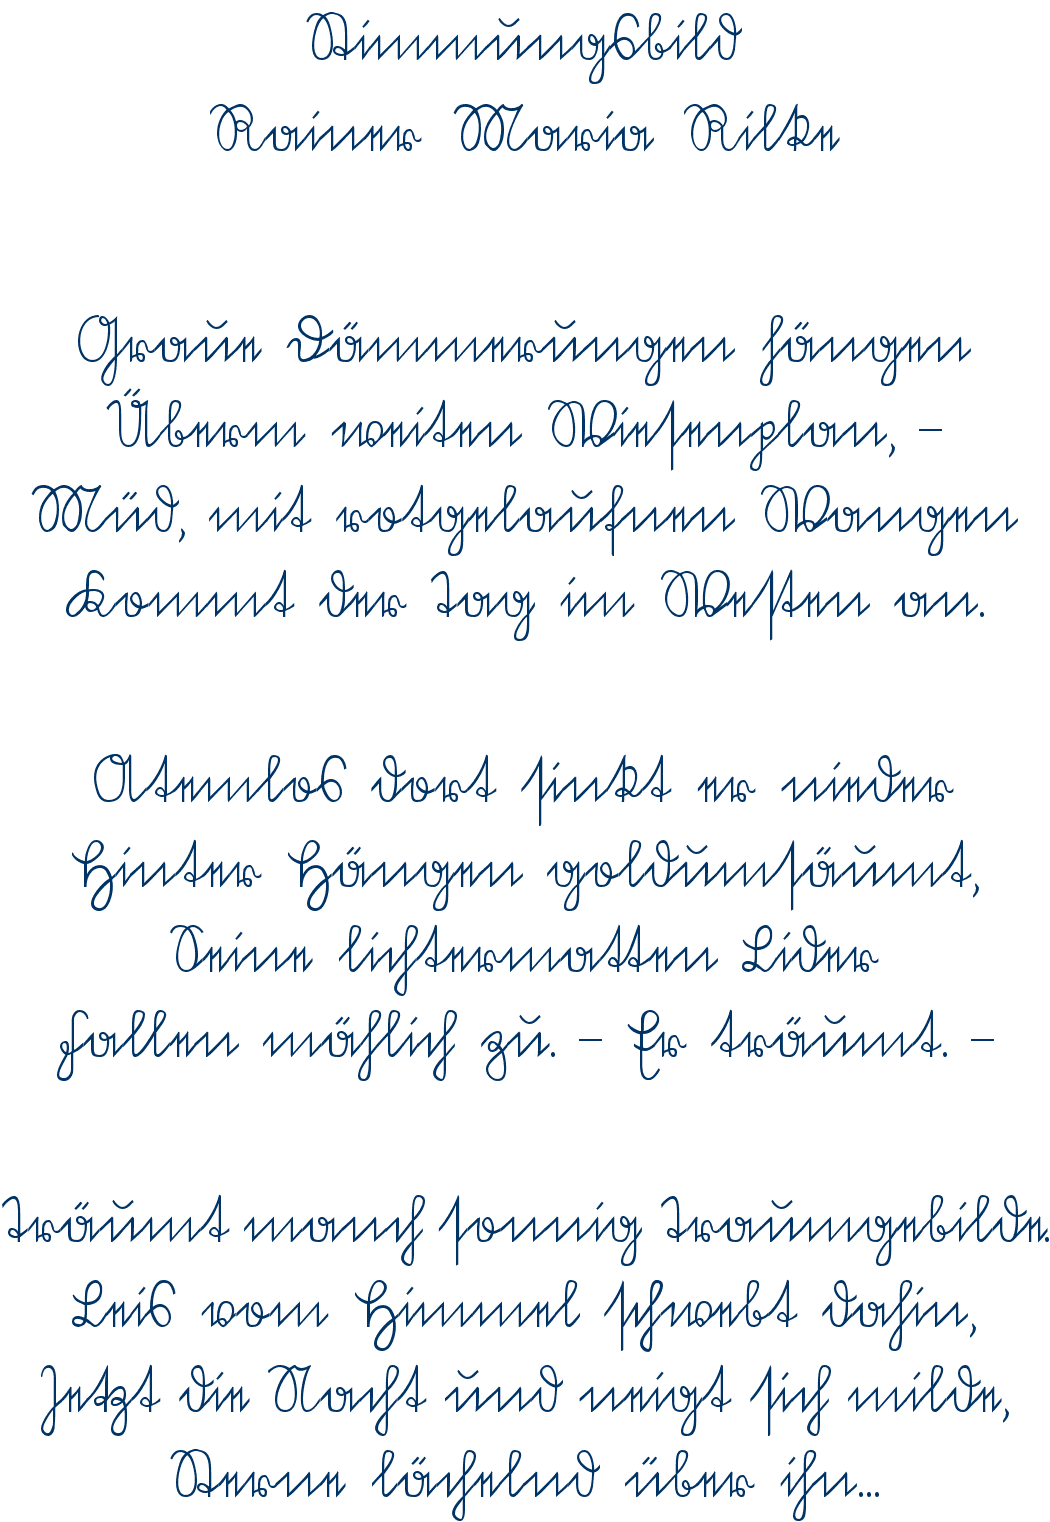 Stimmungsbild
Rainer Maria Rilke
Graue Dämmerungen hängen
Überm weiten Wiesenplan, –
Müd, mit rotgelaufnen Wangen
Kommt der Tag im Westen an.
Atemlos dort sinkt er nieder
Hinter Hängen goldumsäumt,
Seine lichtermatten Lider
Fallen mählich zu. – Er träumt. –
Träumt manch sonnig Traumgebilde.
Leis vom Himmel schwebt dahin,
Jetzt die Nacht und neigt sich milde,
Sterne lächelnd über ihn...